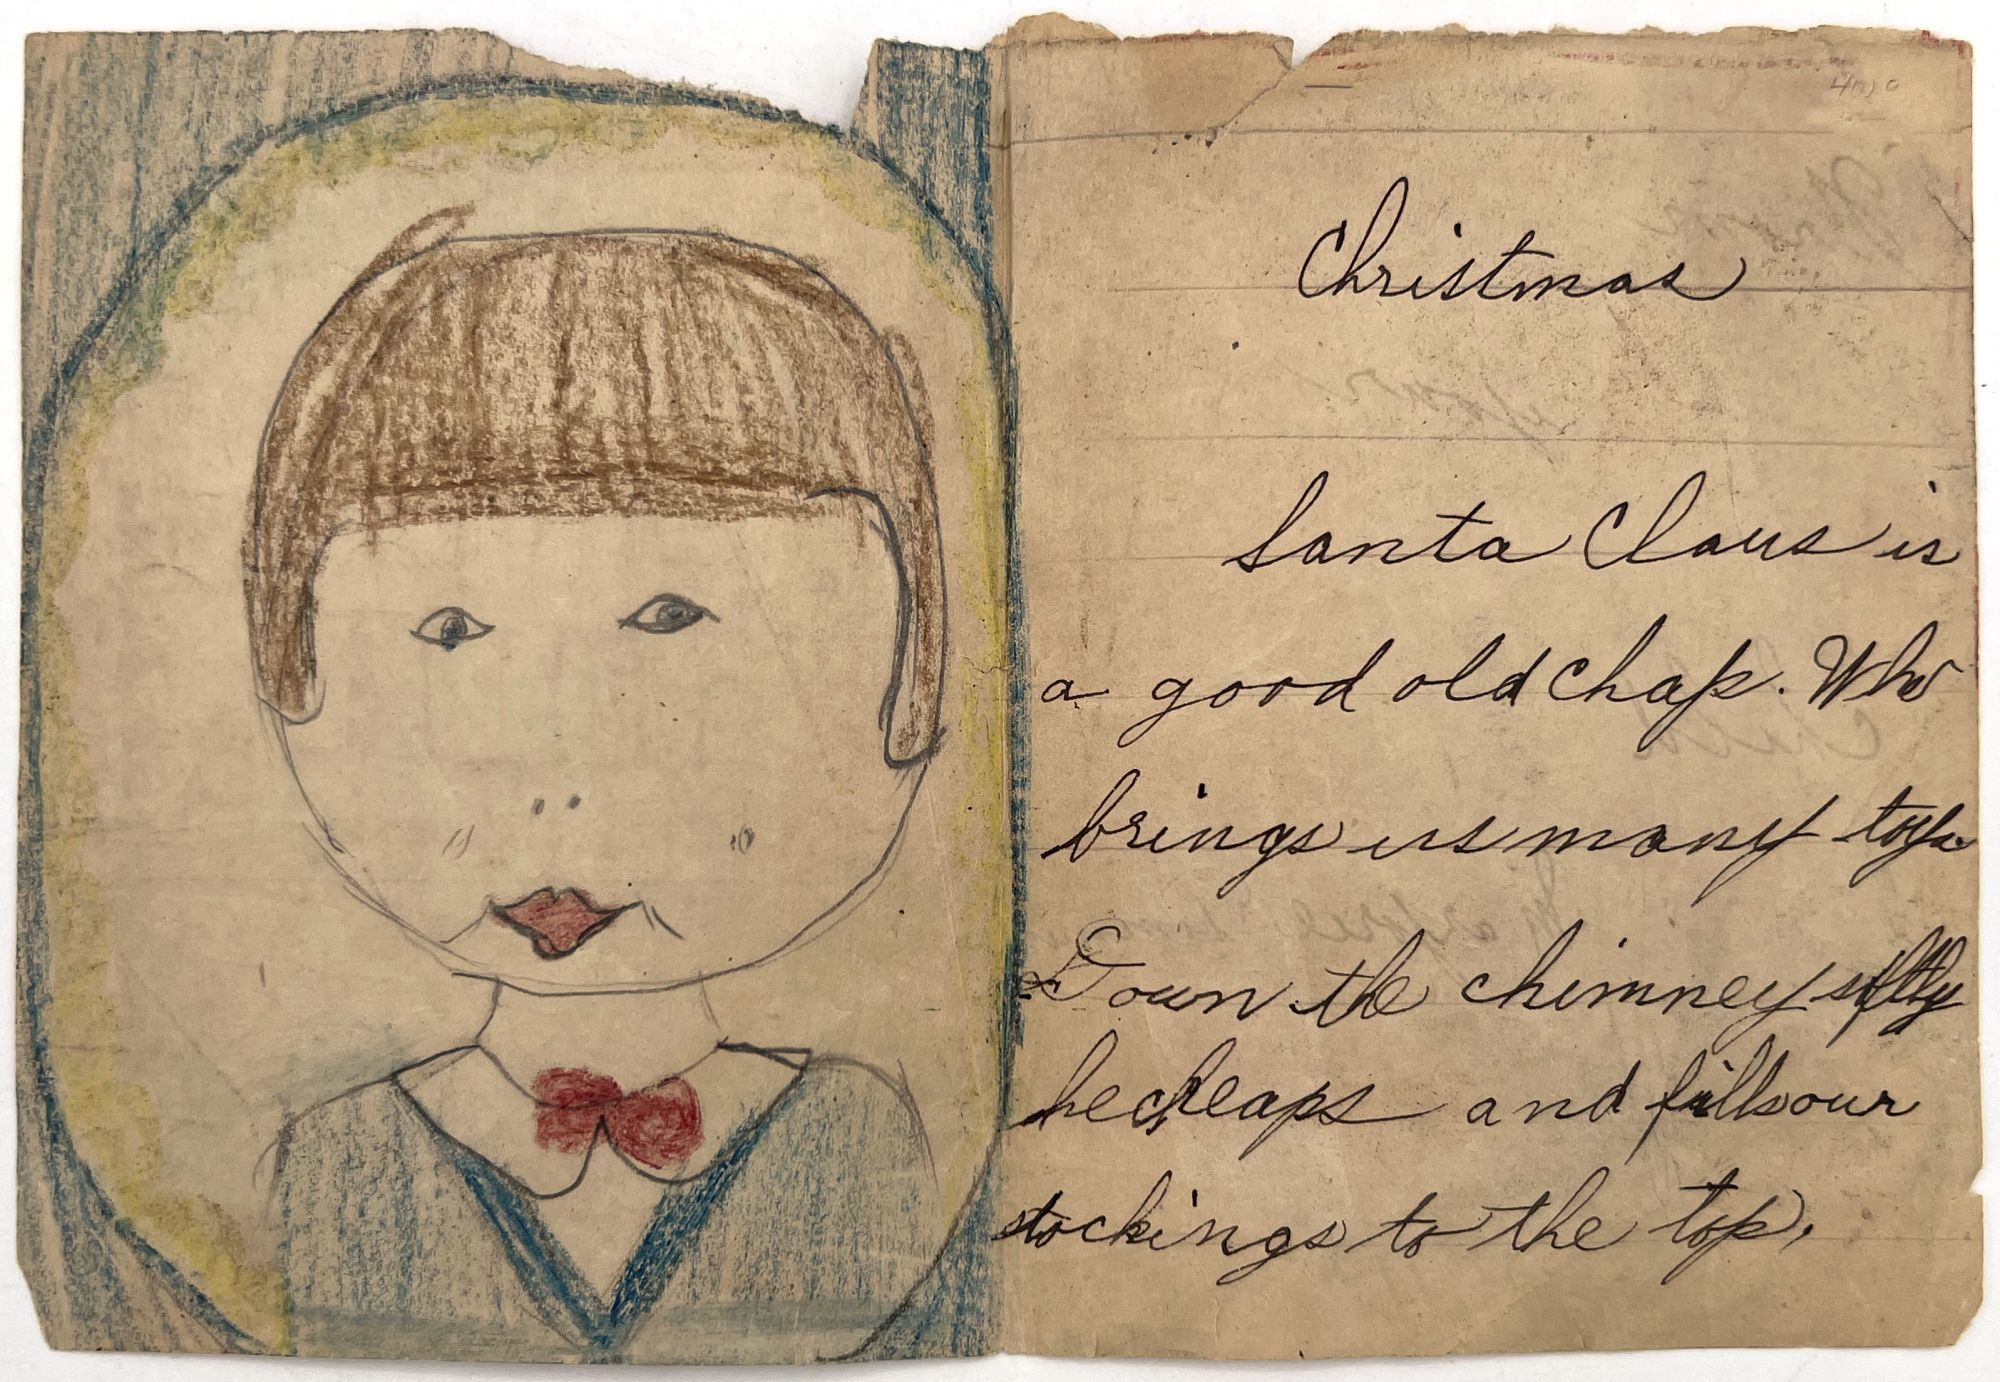 Christmas
Santa Claus is
a good old chap. Who
brings us many toys.
Down the chimney softly
he cheaps and fills our
stockings to the top.